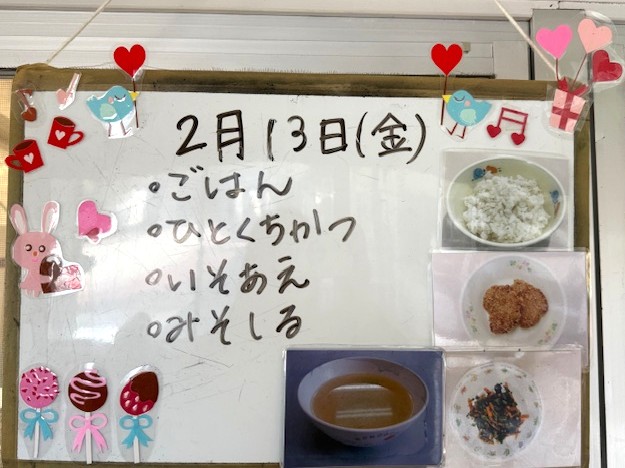 2月13日(金)
○ごはん
○ひとくちかつ
○いそあえ
○みそしる